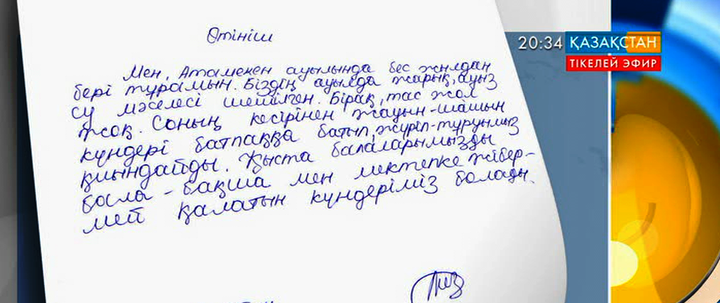 Өтініш
Мен, Атамекен ауылында бес жылдан
бері тұрамын. Біздің ауылда жарық, ауыз
су мәселесі шешілген. Бірақ, тас жол
жоқ. Соның кесірінен жауын-шашын
күндері батпаққа батып, жүріп-тұруымыз
қиындайды. Қыста балаларымызды
бала-бақша мен мектепке жібер-
мей қалатын күндеріміз болады.
20:34 ҚАЗАҚСТАН
ТІКЕЛЕЙ ЭФИР